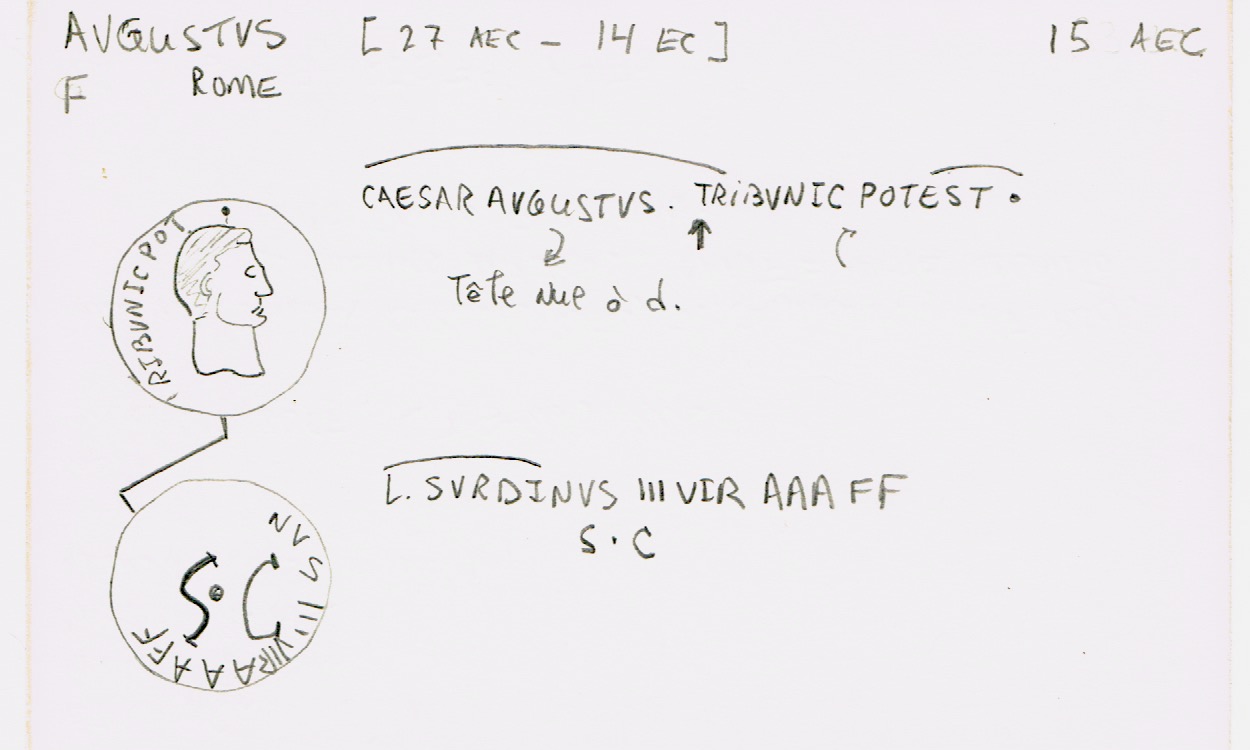 AVGUSTVS [27 AEC - 14 EC] 15 AEC
F ROME
CAESAR AVGUSTVS. TRIBVNIC POTEST.
Tête nue à d.
RIBVNIC POT.
L. SVRDINVS III VIR AAA FF
S. C
NVS III VIR AAA FF
S. C